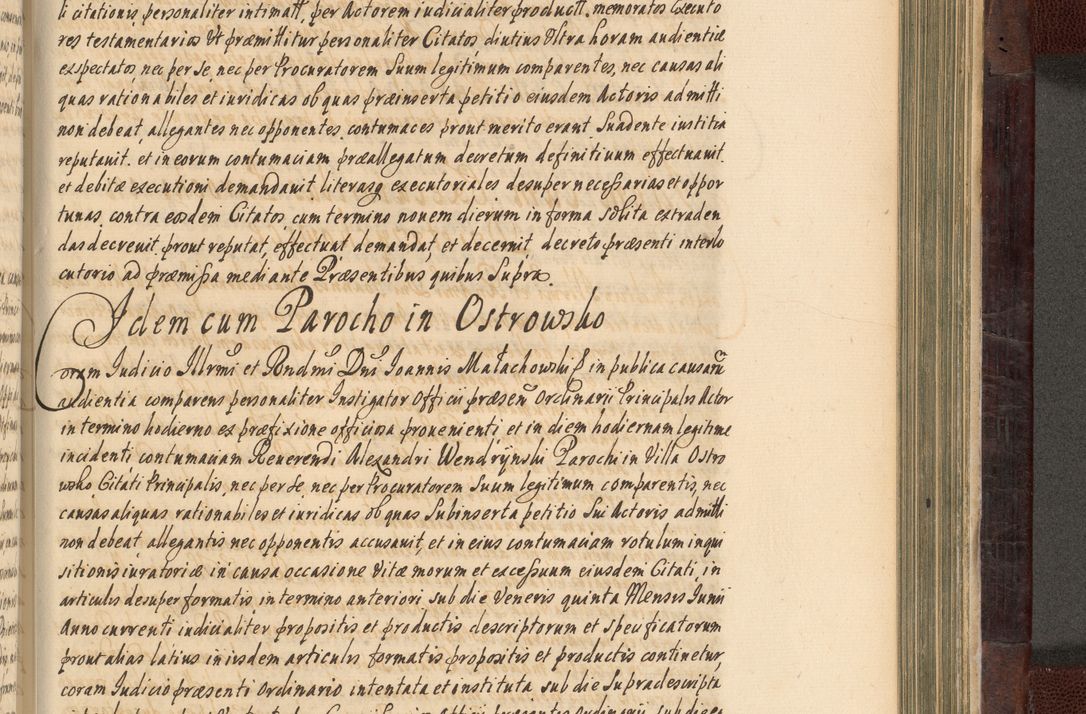 li citationis personaliter intimatt, per Actorem iudicialiter productt. memoratos Executo
res testamentarios Ut præmittitur personaliter Citatos diutius Ultra horam audientiæ
expectatos, nec per se, nec per Procuratorem Suum legitimum comparentes, nec causas ali
quas rationabiles et iuridicas ob quas præinserta petitio eiusdem Actoris admitti
non debeat, allegantes nec opponentes, contumaces prout merito erant Suadente iustitia
reputauit. et in eorum contumaciam præallegatum decretum definitiuum effectuauit
et debitæ executioni demandauit literasq executoriales desuper necessarias et oppor
tunas contra eosdem Citatos, cum termino nouem dierum in forma solita extraden
das decreuit, prout reputat, effectuat, demandat, et decernit, decreto præsenti interlo
cutorio ad præmissa mediante Præsentibus quibus Supra.
Idem cum Parocho in Ostrowsko
Coram Judicio Illrmi et Rndmi Dni Joannis Małachowski in publica causarũ
audientia comparens personaliter Instigator Officii præsen Ordinarii Principalis Actor
in termino hodierno ex præfixione officiosa prouenienti et in diem hodiernam legitime
incidenti contumaciam Reuerendi Alexandri Wendrÿnski Parochi in Villa Ostro
wsko Citati Principalis, nec per se, nec per Procuratorem Suum legitimum comparentis, nec
causas aliquas rationabiles et iuridicas ob quas Subinserta petitio Sui Actoris admitti
non debeat, allegantis nec opponentis accusauit, et in eius contumaciam rotulum inqui
sitionis iuratoriæ in causa occasione Vitæ morum et excessuum eiusdem Citati, in
articulis desuper formatis, in termino anteriori sub die Veneris quinta Mensis Junii
Anno currenti iudicialiter propositis et productis descriptorum et specificatorum
prout alias latius in iisdem articulis formatis propositis et productis continetur,
coram Judicio præsenti Ordinario intentata et instituta sub die Supradescripta